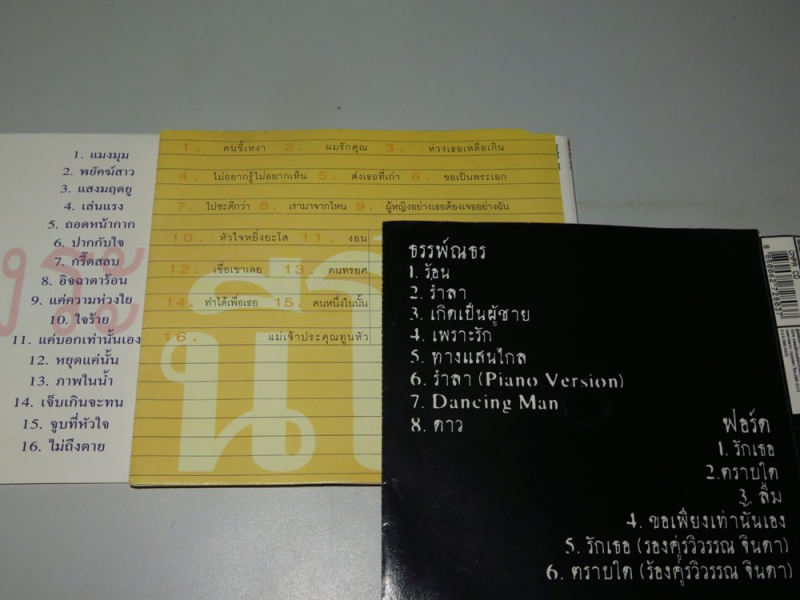 1. แมงมุม
2. พยัคฆ์สาว
3. แสงมฤตยู
4. เล่นแรง
5. ถอดหน้ากาก
6. ปากกับใจ
7. กรี๊ดสลบ
8. อิจฉาตาร้อน
9. แค่ความห่วงใย
10. ใจร้าย
11. แค่บอกเท่านั้นเอง
12. หยุดแค่นั้น
13. ภาพในน้ำ
14. เจ็บเกินจะทน
15. จูบที่หัวใจ
16. ไม่ถึงตาย
1. คนขี้เหงา 2. ผมรักคุณ 3. ห่วงเธอเหลือเกิน
4. ไม่อยากรู้ไม่อยากเห็น 5. ส่งเธอที่เก่า 6. ขอเป็นพระเอก
7. ไปซะดีกว่า 8. เรามาจากไหน 9. ผู้หญิงอย่างเธอต้องเจออย่างฉัน
10. หัวใจหยิ่งยะโส 11. งอน
12. เชื่อเขาเลย 13. คนทรยศ
14. ทำได้เพื่อเธอ 15. คนหนึ่งในนั้น
16. แม่เจ้าประคุณทูนหัว
ธรรพ์ณธร
1. ร้อน
2. รำลา
3. เกิดเป็นผู้ชาย
4. เพราะรัก
5. ทางแสนไกล
6. รำลา (Piano Version)
7. Dancing Man
8. ดาว
ฟอร์ด
1. รักเธอ
2. ตราบใด
3. ลืม
4. ขอเพียงเท่านั้นเอง
5. รักเธอ (รองคู่รวิวรรณ จินดา)
6. ตราบใด (ร้องคู่รวิวรรณ จินดา)